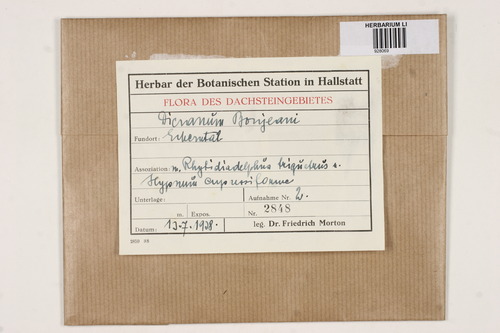 HERBARIUM LI
Herbar der Botanischen Station in Hallstatt
FLORA DES DACHSTEINGEBIETES
Dicranum Bonjeani
Fundort: Echerntal
Assoziation: m. Rhytidiadelphus triquetrus u.
Hypnum cupressiforme
Unterlage: Aufnahme Nr. 2.
m. Expos. Nr. 2848
Datum: 13.7.1938. leg. Dr. Friedrich Morton